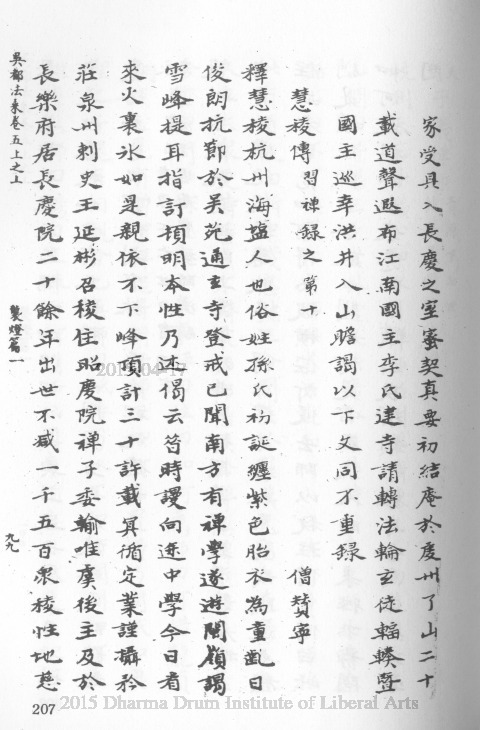 家受具入長慶之室密契真要初結庵於虔州了山二十
載道聲遐布江南國主李氏建寺請轉法輪玄徒輻輳暨
國主巡幸洪井入山瞻謁以下文同不重錄
慧稜傳習禪錄之第十 僧贊寧
釋慧稜杭州海塩人也俗姓孫氏初誕纏紫色胎衣為童齓日
俊朗抗節於吳苑通玄寺登戒已聞南方有禪學遂遊閩嶺謁
雪峰提耳指訂頓明本性乃述偈云昔時謾向途中學今日看
來火裏氷如是親依不下峰頂計三十許載冥循定業謹攝矜
莊泉州刺史王延彬召稜住昭慶院禪子委輸唯虞後主及於
長樂府居長慶院二十餘年出世不减一千五百眾稜性地慈
吳都法乘卷五上之上
製燈篇一
九九
207
2015-04-17
2015 Dharma Drum Institute of Liberal Arts